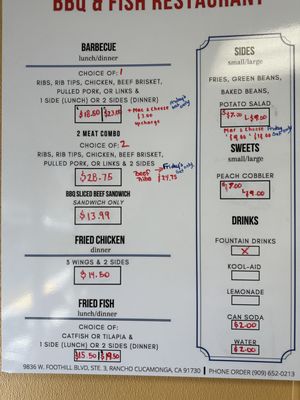 BBQ & FISH RESTAURANT
BARBECUE
lunch/dinner
CHOICE OF: 1
RIBS, RIB TIPS, CHICKEN, BEEF BRISKET,
PULLED PORK, OR LINKS &
1 SIDE (LUNCH) OR 2 SIDES (DINNER)
$18.50 $23.00
+ Mac & Cheese
$3.00
upcharge
2 MEAT COMBO
CHOICE OF: 2
RIBS, RIB TIPS, CHICKEN, BEEF BRISKET,
PULLED PORK, OR LINKS & 2 SIDES
$28.75
Beef
Ribs
Friday's
$29.75
BBQ SLICED BEEF SANDWICH
SANDWICH ONLY
$13.99
FRIED CHICKEN
dinner
3 WINGS & 2 SIDES
$14.50
FRIED FISH
lunch/dinner
CHOICE OF:
CATFISH OR TILAPIA &
1 SIDE (LUNCH) OR 2 SIDES (DINNER)
$15.50 $19.50
SIDES
small/large
FRIES, GREEN BEANS,
BAKED BEANS,
POTATO SALAD
$7.00 L$9.00
Mac & Cheese
SWEETS
small/large
PEACH COBBLER
L$9.00
DRINKS
FOUNTAIN DRINKS
X
KOOL-AID
LEMONADE
CAN SODA
$2.00
WATER
$2.00
9836 W. FOOTHILL BLVD, STE. 3, RANCHO CUCAMONGA, CA 91730 | PHONE ORDER (909) 652-0213